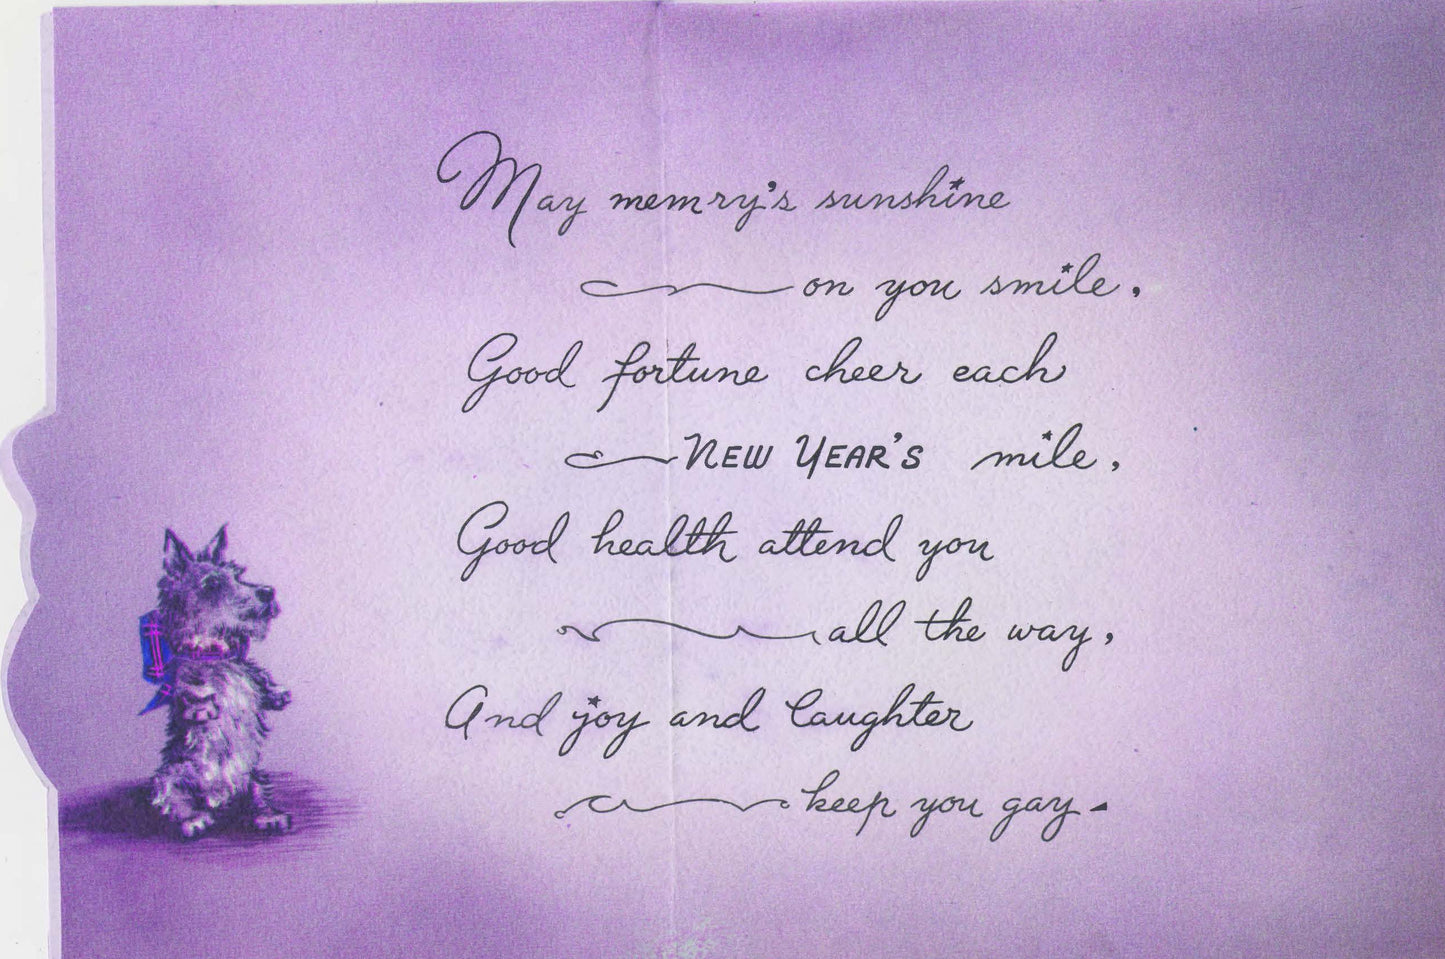 May memry's sunshine
on you smile,
Good fortune cheer each
NEW YEAR'S mile,
Good health attend you
all the way,
And joy and laughter
keep you gay.